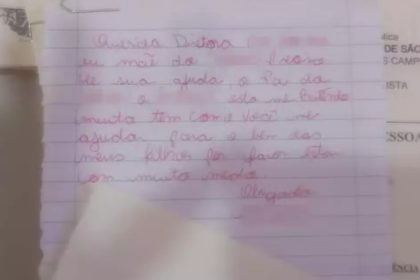 Querida Diretora
eu mãe do
de sua ajuda, o Pai da
o está me batendo
muito tem como você me
ajudar para o bem dos
meus filhos por favor estou
com muito medo.
Obrigada
DE SÃO
S CAMP
ISTA
ESSOA
ÊNCIA